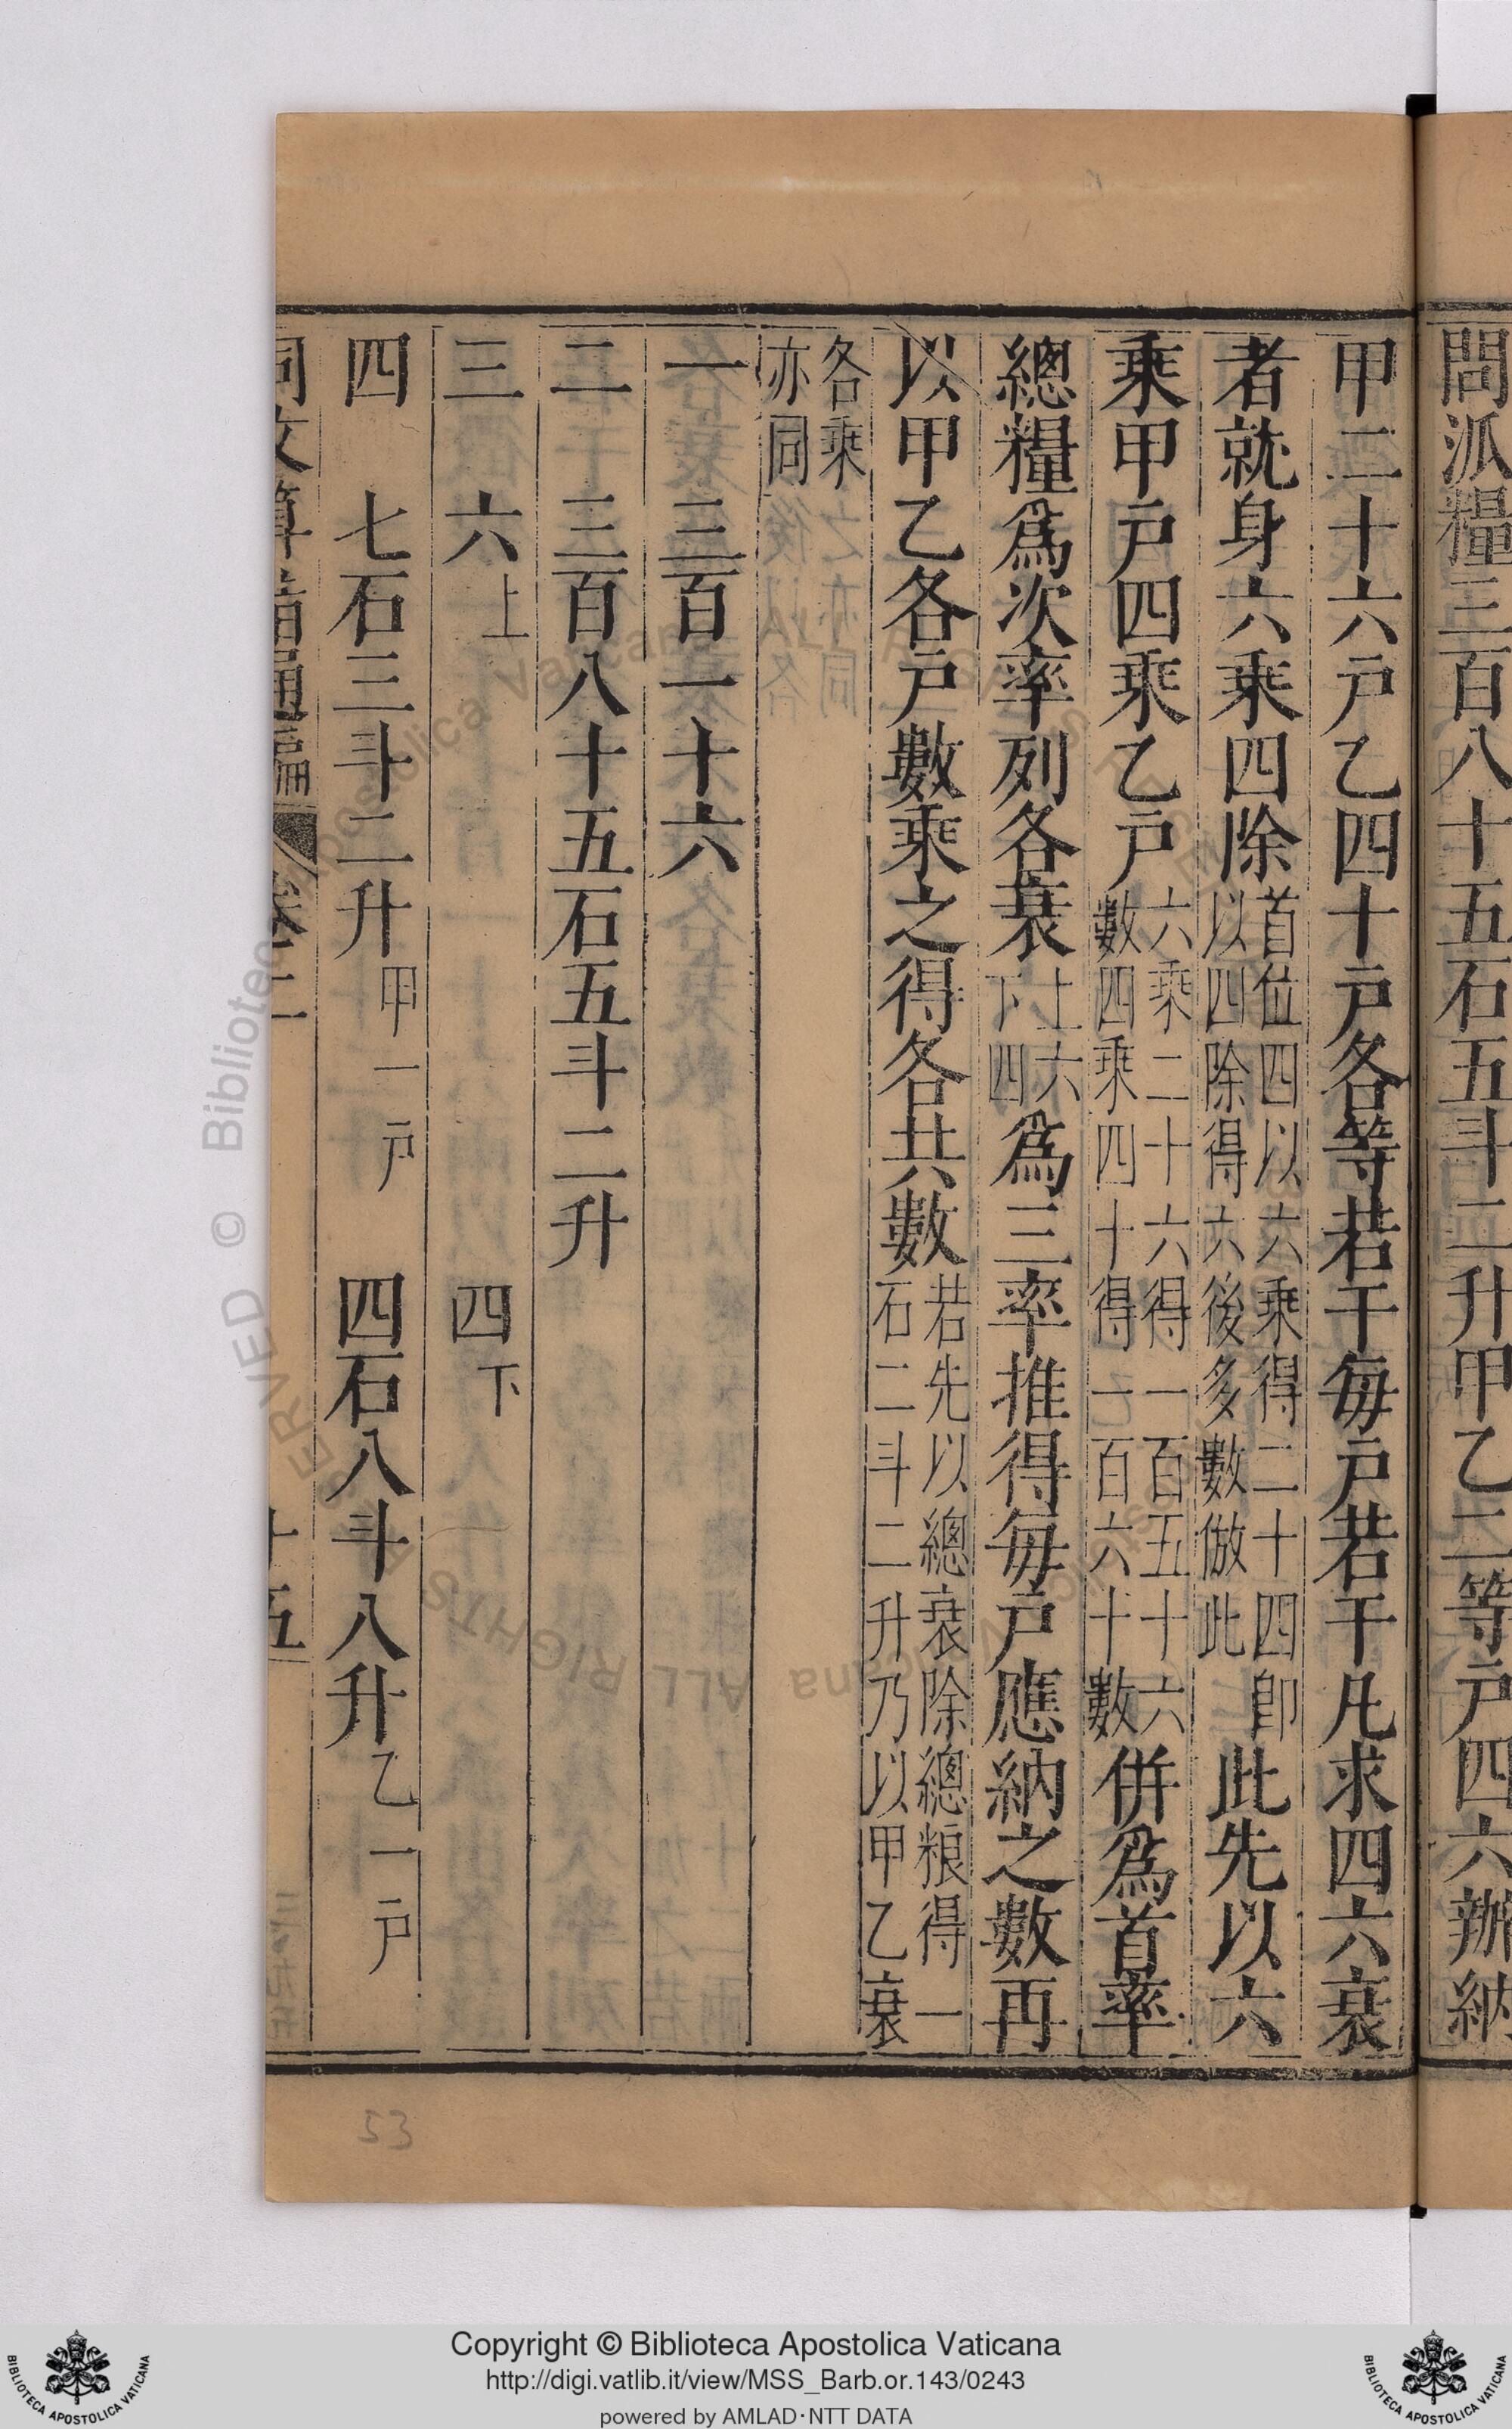 問派糧三百八十五石五斗二升甲乙二等戸四六辦納
甲二十六戸乙四十戸各等若干每戸若干凡求四六衰
者就身六乘四除首位四以六乘得二十四即以四除得六後多數倣此此先以六
乘甲戸四乘乙戸六乘二十六得一百五十六數四乘四十得一百六十數併爲首率
總糧爲次率列各衰上六下四爲三率推得每戸應納之數再
以甲乙各戸數乘之得各共數若先以總衰除總粮得一石二斗二升乃以甲乙衰
各乘亦同
一 三百一十六
二 三百八十五石五斗二升
三 六上 四下
四 七石三斗二升甲一戸 四石八斗八升乙一戸
同文算指通編 卷二 十五
53
© Biblioteca Apostolica Vaticana ALL RIGHTS RESERVED
Copyright © Biblioteca Apostolica Vaticana
http://digi.vatlib.it/view/MSS_Barb.or.143/0243
powered by AMLAD·NTT DATA
BIBLIOTECA APOSTOLICA VATICANA
BIBLIOTECA APOSTOLICA VATICANA